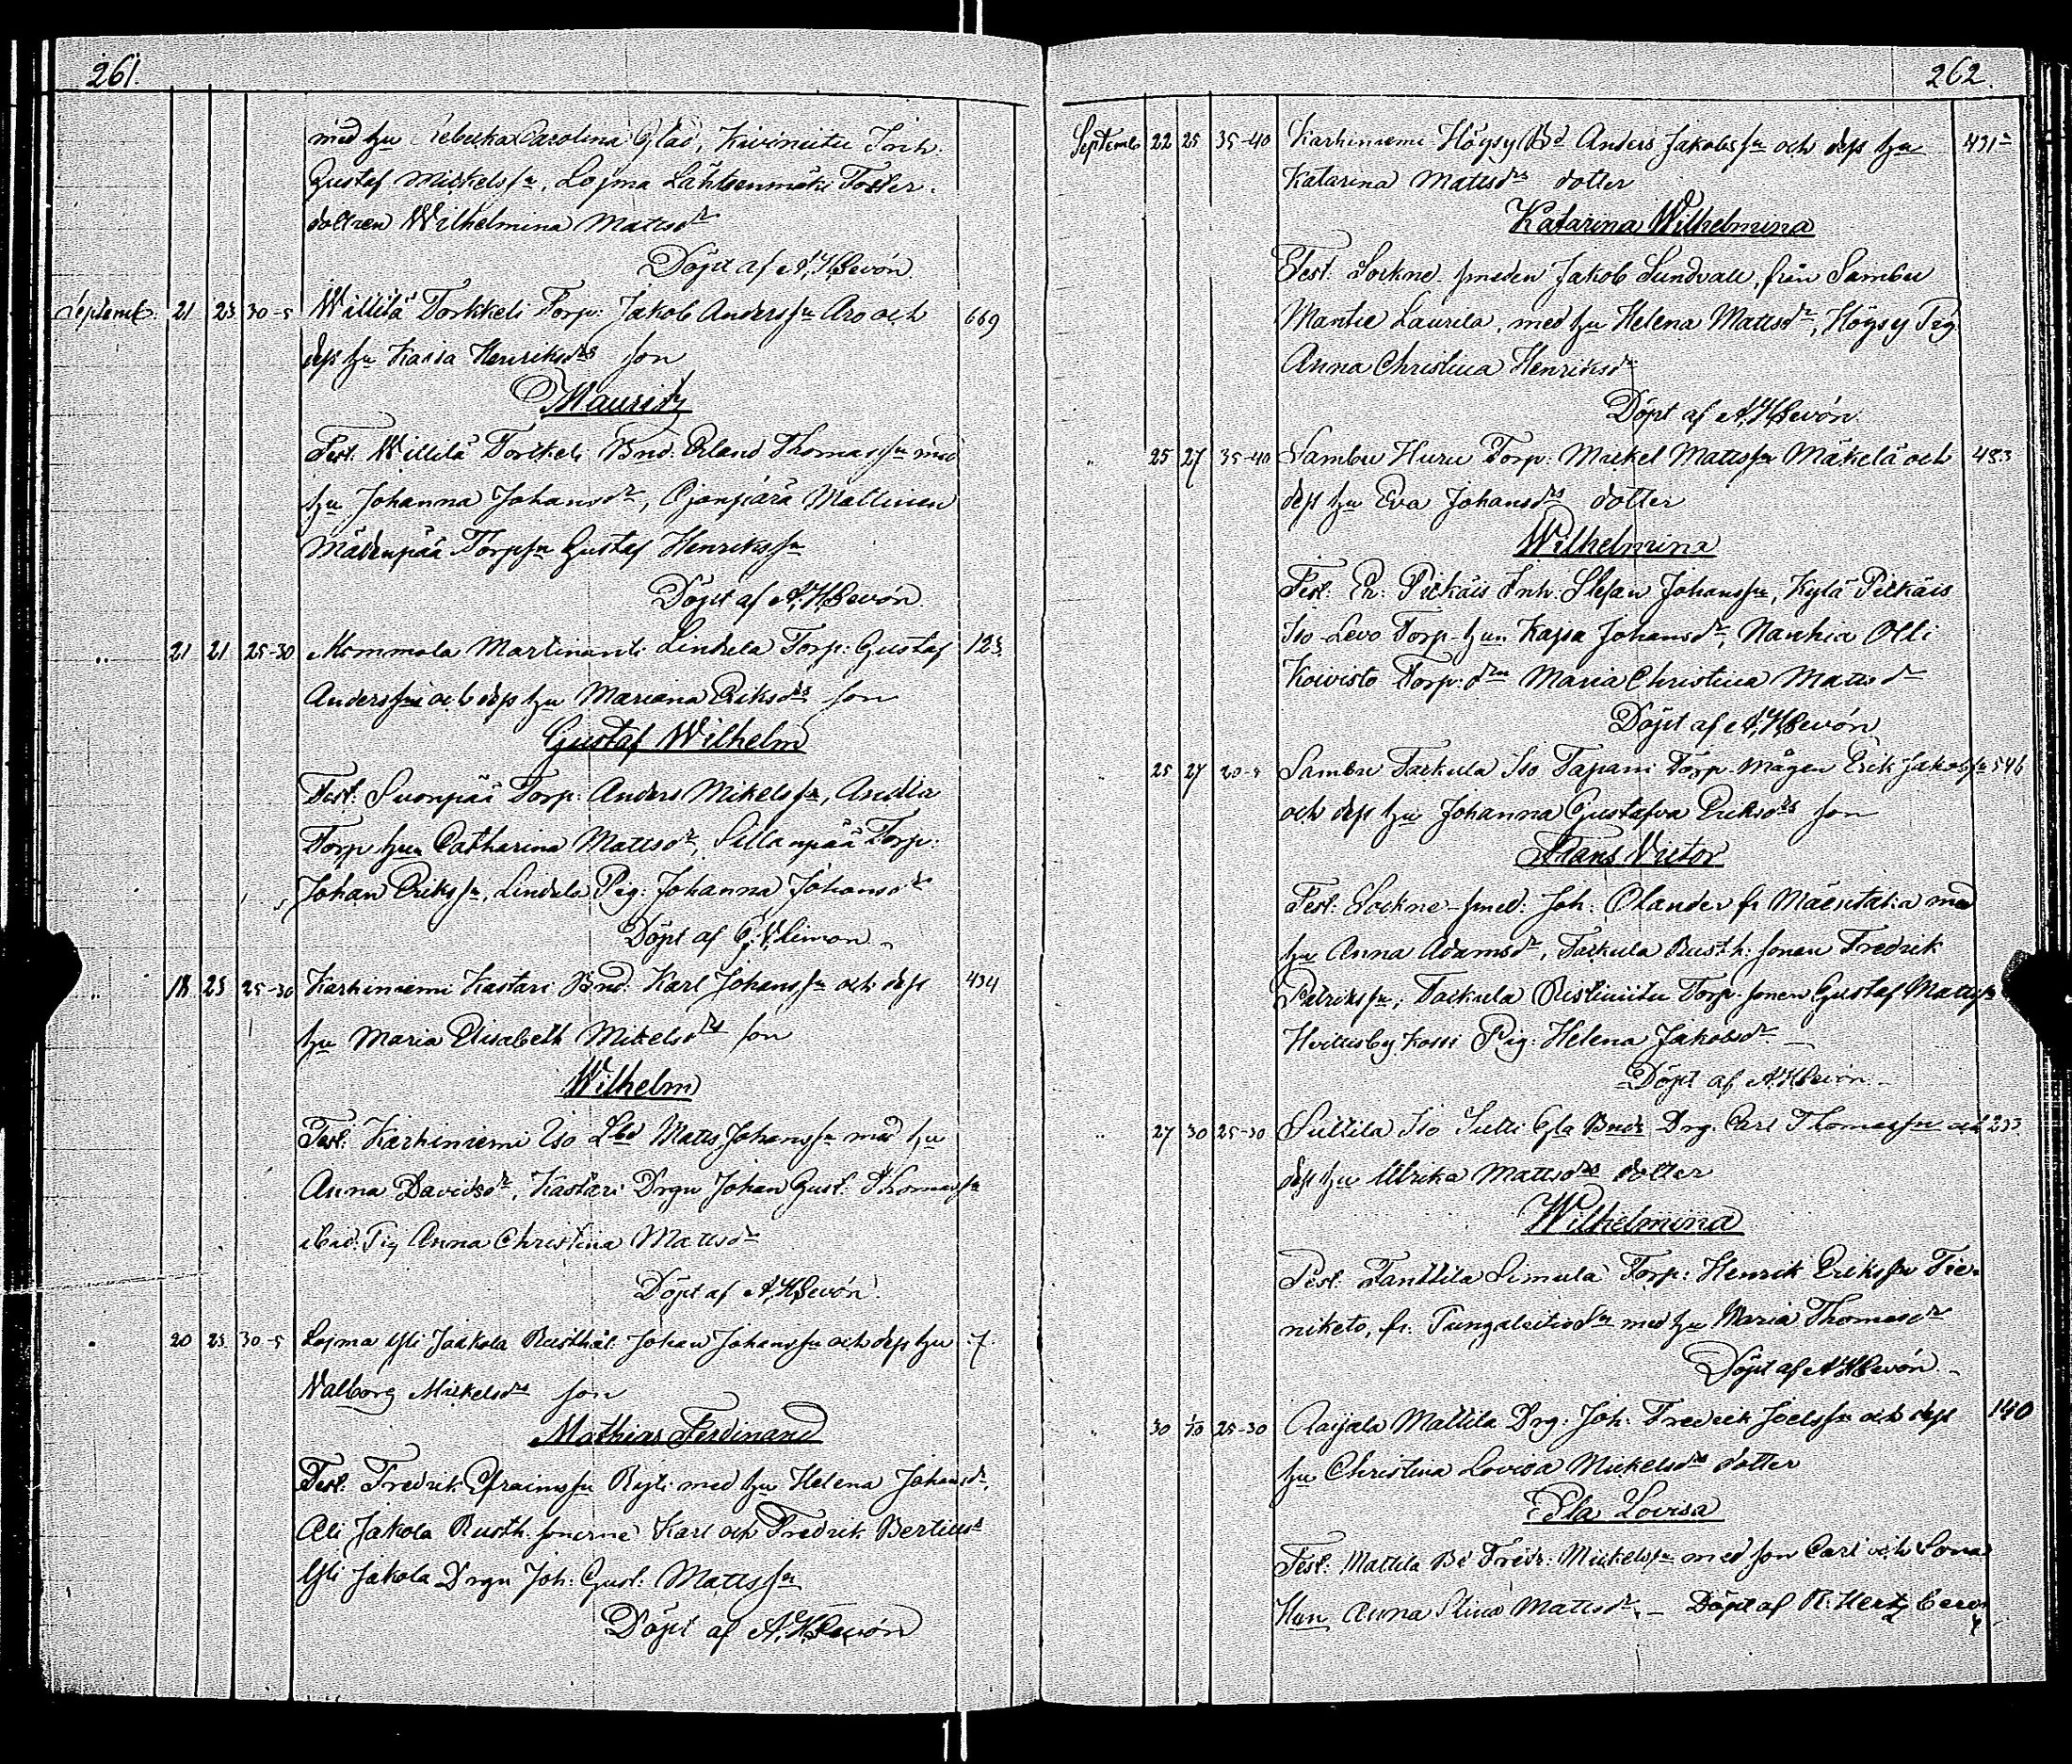 261.
med hu Rebecka Carolina Glad, Kiviniitu Inh.
Gustaf Mickelsson, Lojma Lähteenmäki Foster-
dottren Wilhelmina Mattsdr
Döpt af A. H. Sevón
Septemb. 21 23 30-5 Willilä Torkkeli Torp: Jakob Andersson Aro och 669
dess hu Kaisa Henriksdrs son
Mauritz
Test. Willilä Torkkeli Bnd. Erland Thomasson med
hu Johanna Johansdr, Ojanperä Mattinen
Mäenpää Torpsn Gustaf Henriksson
Döpt af A. H. Sevón
" 21 21 25-30 Mommola Martinanti Lindela Torp: Gustaf 123
Andersson och dess hu Mariana Eriksdrs son
Gustaf Wilhelm
Test. Suonpää Torp: Anders Mikelsson,
Torp. hun Catharina Mattsdr, Sillanpää Torp:
Johan Eriksson, Lindela Pig: Johanna Johansdr
Döpt af Limon
" 18 23 25-30 Karhiniemi Kastari Bnd: Karl Johansson och dess 434
hu Maria Elisabeth Mikelsdrs son
Wilhelm
Test. Karhiniemi Iso Matts Johansson med hu
Anna Davidsdr, Kastari Drgn Johan Gust. Thomasson
ibid. Pig Anna Christina Mattsdr
Döpt af A. H. Sevón
" 20 23 30-5 Lojma Yli Jaakola Rusthål: Johan Johansson och dess hu 7.
Walborg Mickelsdrs son
Mathias Ferdinand
Test. Fredrik Efraimsson Ryti med hu Helena Johansdr,
Ali Jakola Rusth. sönerne Karl och Fredrik Bertils
Yli Jakola Drgn Joh: Gust: Mattsson
Döpt af A. H. Sevón
262.
Septemb 22 25 35-40 Karhiniemi Höysy Bd Anders Jakobsson och dess hu 431
Katarina Mattsdrs dotter
Katarina Wilhelmina
Test. Sockne smeden Jakob Sundvall, från Sambu
Mantie Laurila, med hu Helena Mattsdr, Höysy Pig
Anna Christina Henriksdr
Döpt af A. H. Sevón
" 25 27 35-40 Sambu Huru Torp: Mickel Mattsson Mäkelä och 483
dess hu Eva Johansdrs dotter
Wilhelmina
Test. Inh. Stefan Johansson, Kylä Pitkäis
Iso-Levo Torp-hun Kajsa Johansdr, Nanhia Olli
Koivisto Torp: drn Maria Christina Mattsdr
Döpt af A. H. Sevón
25 27 20-5 Sambu Takkula Iso Tapani Torp-Mågen Erik Jakobsson 546
och dess hu Johanna Gustafva Eriksdrs son
Frans Victor
Test. Sockne-smed. Joh: Olander fr Mäentaka med
hu Anna Adamsdr, Takkula Rusth: sonen Fredrik
Patriksson, Takkula Ristiniitu Torp-sonen Gustaf Mattsson
Hvittisby Kossi Pig: Helena Jakobsdr —
Döpt af A. H. Sevón
" 27 30 25-30 Suttila Iso Sutti Drg. Carl Thomasson och 233
dess hu Ulrika Mattsdrs dotter
Wilhelmina
Test. Tanttila Simula Torp: Henrik Eriksson
med hu Maria Thomasdr
Döpt af A. H. Sevón —
" 30 1/10 25-30 Raijala Mattila Drg: Joh: Fredrik Joelsson och dess 140
hu Christina Lovisa Mickelsdrs dotter
Eda Lovisa
Test. Mattila Bd Fredr: Mickelsson med son Carl och Sona
Hun Anna Stina Mattsdr. — Döpt af R. Hertzberg